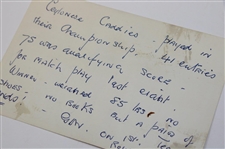 Ceylonese Caddies played in
their Championship. 41 entries
75 was qualifying score
for match play last eight.
Winner weighed 85 lbs. no
shoes, no socks but a pair of
on 1st. tee